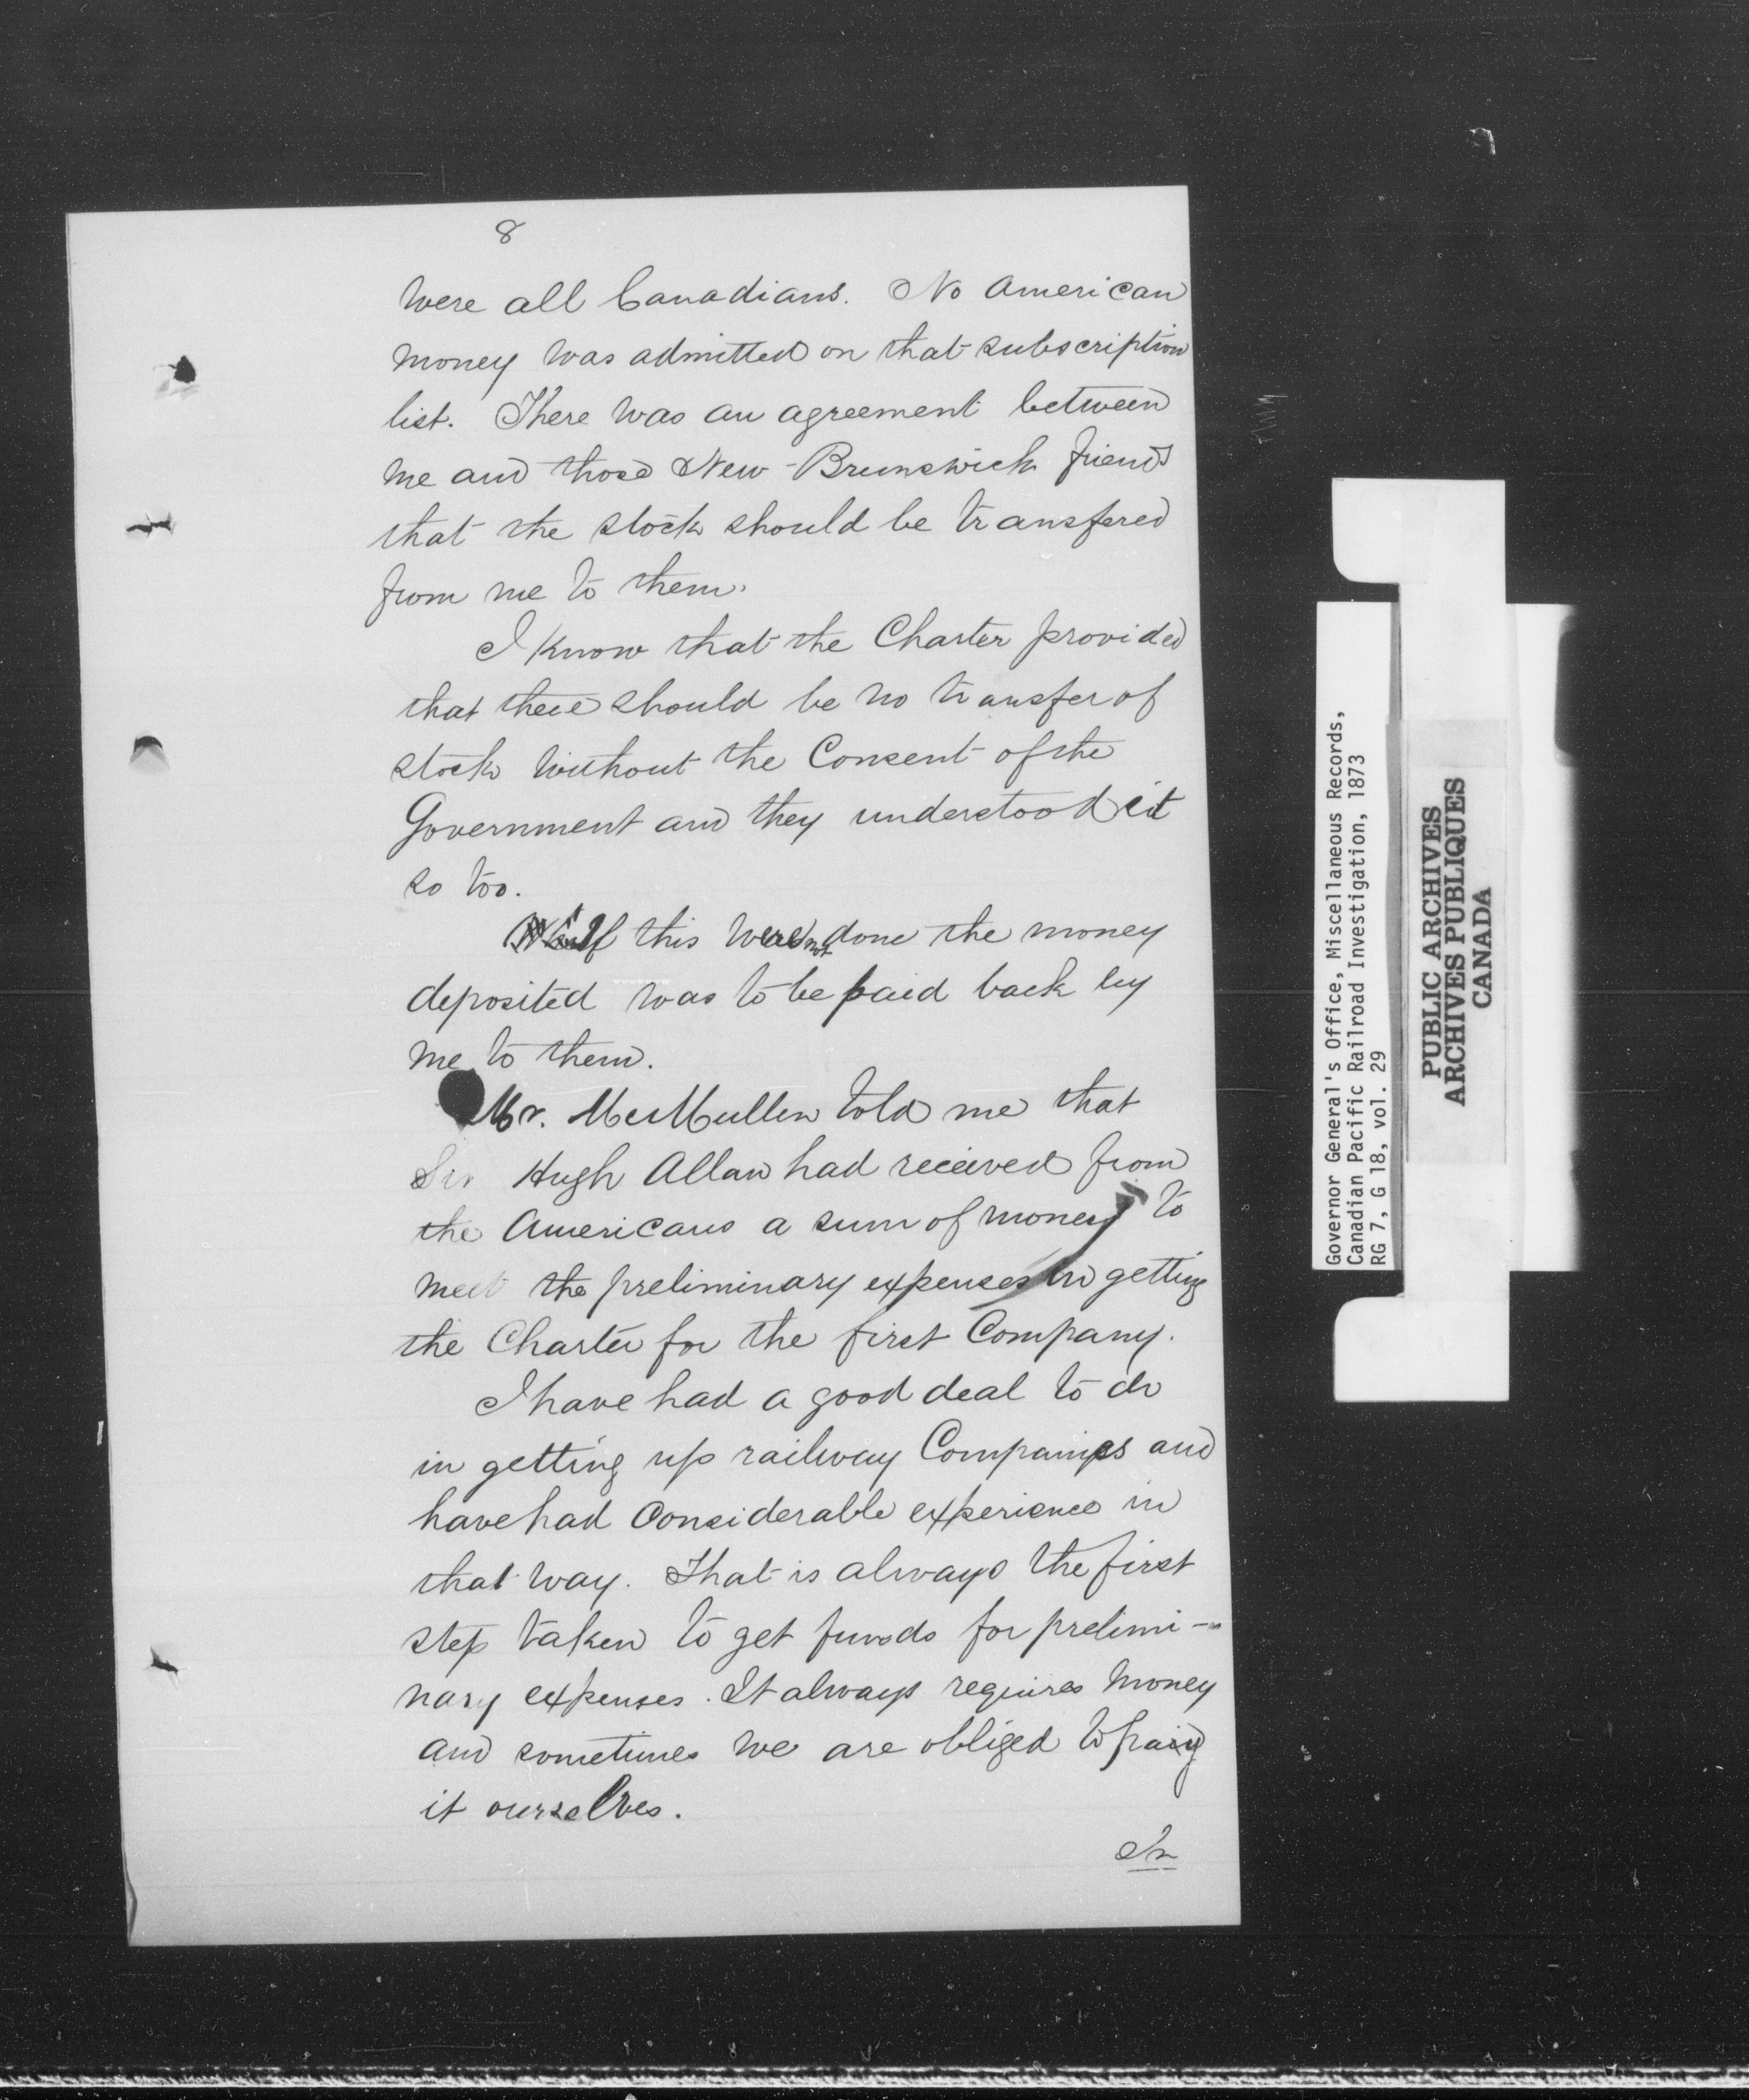 8
were all Canadians. No American
money was admitted on that subscription
list. There was an agreement between
me and those New-Brunswick friends
that the stock should be transfered
from me to them.
I know that the Charter provided
that there should be no transfer of
stock without the Consent of the
Government and they understood it
so too.
If this were not done the money
deposited was to be paid back by
me to them.
Mr. McMullen told me that
Sir Hugh Allan had received from
the Americans a sum of money to
meet the preliminary expenses in getting
the Charter for the first Company.
I have had a good deal to do
in getting up railway Companies and
have had Considerable experience in
that way. That is always the first
step taken to get funds for prelimi-
nary expenses. It always requires money
and sometimes we are obliged to pay
it ourselves.
In
Governor General's Office, Miscellaneous Records,
Canadian Pacific Railroad Investigation, 1873
RG 7, G 18, vol. 29
PUBLIC ARCHIVES
ARCHIVES PUBLIQUES
CANADA